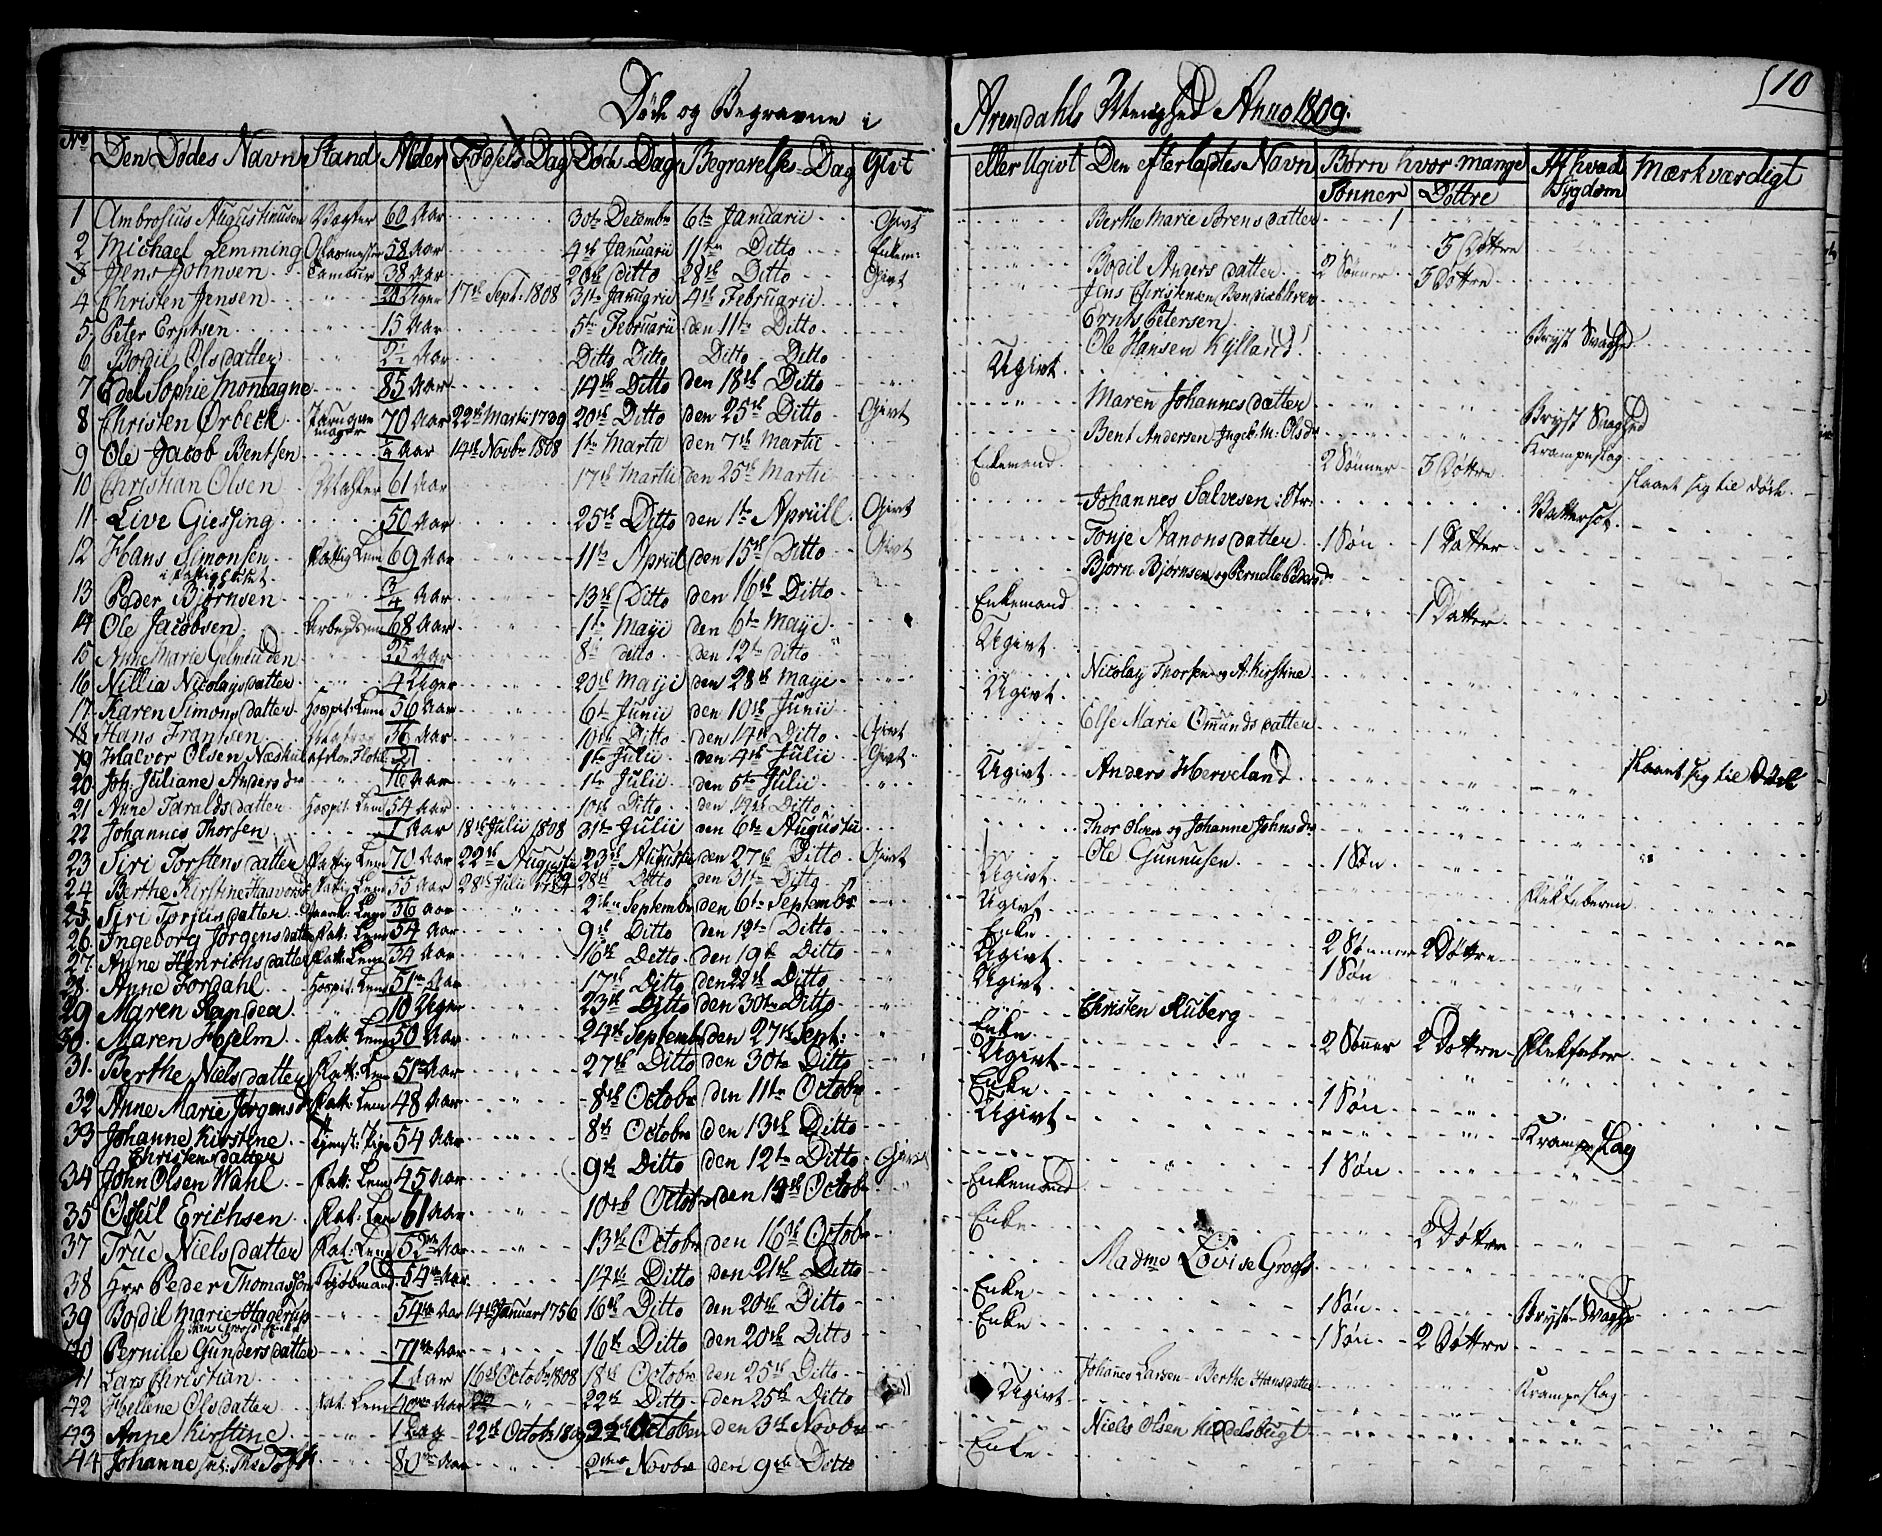 110
Døde og Begravne i Arendahls Menighed Anno 1809.
No Den Dødes Navn Stand Alder Fødsels Dag Døds-Dag Begravelses-Dag Givt eller Ugivt Den efterladtes Navn Børn hvor mange Af hvad Sygdom Mærkværdigt
Sønner Døttre
1 Ambrosius Augustinusen Vægter 60 Aar 30te Decembr 6te Januarii Givt Berthe Marie Sørensdatter 1
2 Michael Lemming 58 Aar 4de Januarii 11te Ditto Enkem: 3 Døttre
3 Jens Johnsen Tambur 38 Aar 20de ditto 28de Ditto Givt Bodil Andersdatter 2 Sønner 3 Døttre
4 Christen Jensen 20 Uger 17de Sept: 1808 31te Januarii 4de Februarii Jens Christensen
5 Peter Erntsen 15 Aar 5te Februarii den 11te Ditto Ernts Petersen
6 Bodil Olsdatter 2½ Aar Ditto Ditto Ditto Ditto Ole Hansen Kylland Bryst Svaghed
7 Edel Sophie Montagne 85 Aar 14de Ditto den 18de Ditto Ugivt
8 Christen Ørbeck 70 Aar 22de Martii 1739 20de Ditto den 25de Ditto Givt Maren Johannesdatter
9 Ole Jacob Bentsen ¼ Aar 14de Novbr 1808 1te Martii den 7de Martii Bent Andersen Ingeb: M: Olsdr Bryst Svaghed
10 Christian Olsen 61 Aar 17de Martii den 25de Martii Enkemand 2 Sønner 3 Døttre Krampeslag
11 Live Giessing 50 Aar 25de Ditto den 1te Aprill Givt Johannes Salvesen Skaaret sig til døde
12 Hans Simonsen i Fattighuset Fattig Lem 69 Aar 11te April den 15de Ditto Givt Tonje Aanonsdatter 1 Søn 1 Datter Vattersot
13 Peder Bjørnsen ¾ Aar 13de Ditto den 16de Ditto Bjørn Bjørnsen og Pernille Pedersdr
14 Ole Jacobsen Arbeidsm 68 Aar 1te Maji den 6te Maji Enkemand 1 Datter
15 Anne Marie Gelmuyden 25 Aar 8de ditto den 12te ditto Ugivt
16 Nillia Nicolaysdatter 4 Uger 20de Maji den 28de Maji Nicolay Thorsen og A. Kirstine
17 Karen Simonsdatter Hospit: Lem 56 Aar 6te Junii den 10de Junii Ugivt
18 Hans Frantsen 36 Aar 10de Ditto den 14de Ditto Givt Else Marie Omundsdatter
19 Halvor Olsen Næskil 1te Julii den 4de Julii Givt
20 Joh: Juliane Andersdr 16 Aar 1te Julii den 5te Julii Ugivt Anders Herveland
21 Anne Taraldsdatter Hospit: Lem 54 Aar den Ditto Skaaret sig til Døde
22 Johannes Thorsen 1 Aar 18de Julii 1808 31te Julii den 6te Augustii Thor Olsen og Johanne Johnsdr
23 Siri Torstensdatter Fattig Lem 70 Aar 22de Augusti 1739 23de Augustii den 27de Ditto Givt Ole Gunnusen 1 Søn
24 Berthe Kirstine Haavorsd Fattig Lem 55 Aar 28de Julii 28de Ditto den 31te Ditto Ugivt
25 Siri Torjusdatter Lem 36 Aar 2den Septembr den 6te Septembr Ugivt Flekfeberen
26 Ingeborg Jørgensdatter Fat: Lem 54 Aar 9de Ditto den 12te Ditto Enke 2 Sønner 2 Døttre
27 Anne Henrichsdatter Fat: Lem 34 Aar 16de Ditto den 19de Ditto Ugivt 1 Søn
28 Anne Fordahl Hospit: Lem 51 Aar 17de Ditto den 22de Ditto Ugivt
29 Maren Sandea 10 Uger 23de Ditto den 30te Ditto Christen Auberg
30 Maren Hjelm Fat: Lem 50 Aar 24de Septembr den 27de Sept: Enke 2 Sønner 2 Døttre Flekfeber
31 Berthe Nielsdatter Fat: Lem 51 Aar 27de Ditto den 30te Ditto Ugivt
32 Anne Marie Jørgensd Fat: Lem 48 Aar 8de Octobr den 11te Octobr Enke 1 Søn
33 Johanne Kirstine Christensdatter Tjenst: Pige 54 Aar 8de Octobr den 13de Ditto Ugivt Krampe Slag
34 John Olsen Wahl Fatt: Lem 45 Aar 9de Ditto den 12te Ditto Givt 1 Søn
35 Osul Erichsen Fat: Lem 61 Aar 10de Octobr den 14de Octobr Enkemand
37 True Nielsdatter Fat: Lem 52 Aar 13de Octobr den 16de Octobr Enke 2 Døttre
38 Hrr Peder Thomassen Kjøbmand 54 Aar 14de Ditto den 21de Ditto Madme Lovise Groos
39 Bodil Marie Hagerup 54 Aar 14de Januar 1756 16de Ditto den 20de Ditto Enke 1 Søn Bryst Svagh:
40 Pernille Gundersdatter 71 Aar 16de Ditto den 20de Ditto Enke 1 Søn 2 Døttre
41 Lars Christian 1 Aar 16de Octobr 1808 18de Octobr den 25de Ditto Johannes Larsen Berthe Hansdatter
42 Hellene Olsdatter Fat: Lem 40 Aar 22de Ditto den 25de Ditto Ugivt Krampeslag
43 Anne Kirstine 1 Dag 22de Octobr 1809 22de October den 3de Novbr Niels Olsen Kiddelsbugt
44 Johanne 80 Aar 2den Novbr den 9de Ditto Enke